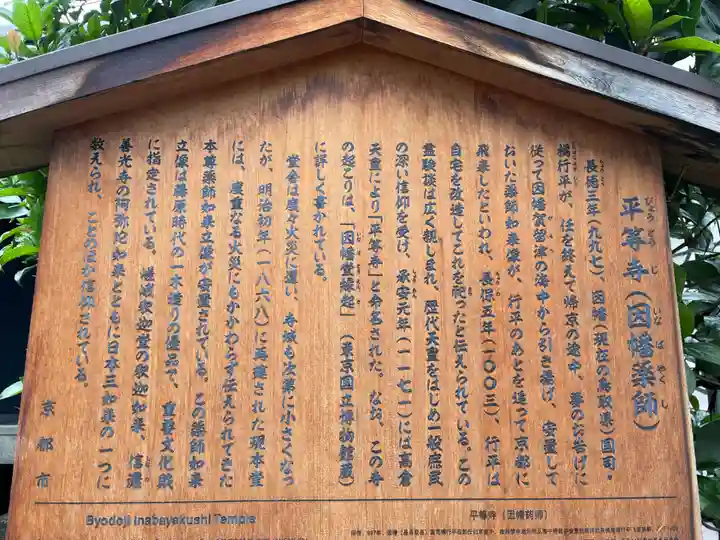 平等寺（因幡薬師）
びょうどうじ
いなばやくし
長徳三年（九九七）因幡（現在の鳥取県）国司・
橘行平が、任を終えて帰京の途中、夢のお告げに
従って因幡賀留津の海中から引き揚げ、安置して
おいた薬師如来像が、行平のあとを追って京都に
飛来したといわれ、長保五年（一〇〇三）、行平は
自宅を改造してこれを祀ったと伝えられている。この
霊験談は広く親しまれ、歴代天皇をはじめ一般庶民
の深い信仰を受け、承安元年（一一七一）には高倉
天皇により「平等寺」と命名された。なお、この寺
の起こりは、「因幡堂縁起」（東京国立博物館蔵）
に詳しく書かれている。
堂舎は度々火災に遭い、寺域も次第に小さくなっ
たが、明治初年（一八六八）に再建された現本堂
には、度重なる火災にもかかわらず伝えられてきた
本尊薬師如来立像が安置されている。この薬師如来
立像は藤原時代の一木造りの優品で、重要文化財
に指定されている。嵯峨釈迦堂の釈迦如来、信濃
善光寺の阿弥陀如来とともに日本三如来の一つに
数えられ、ことのほか信仰されている。
京都市
Byodoji Inabayakushi Temple
平等寺（因幡药师）